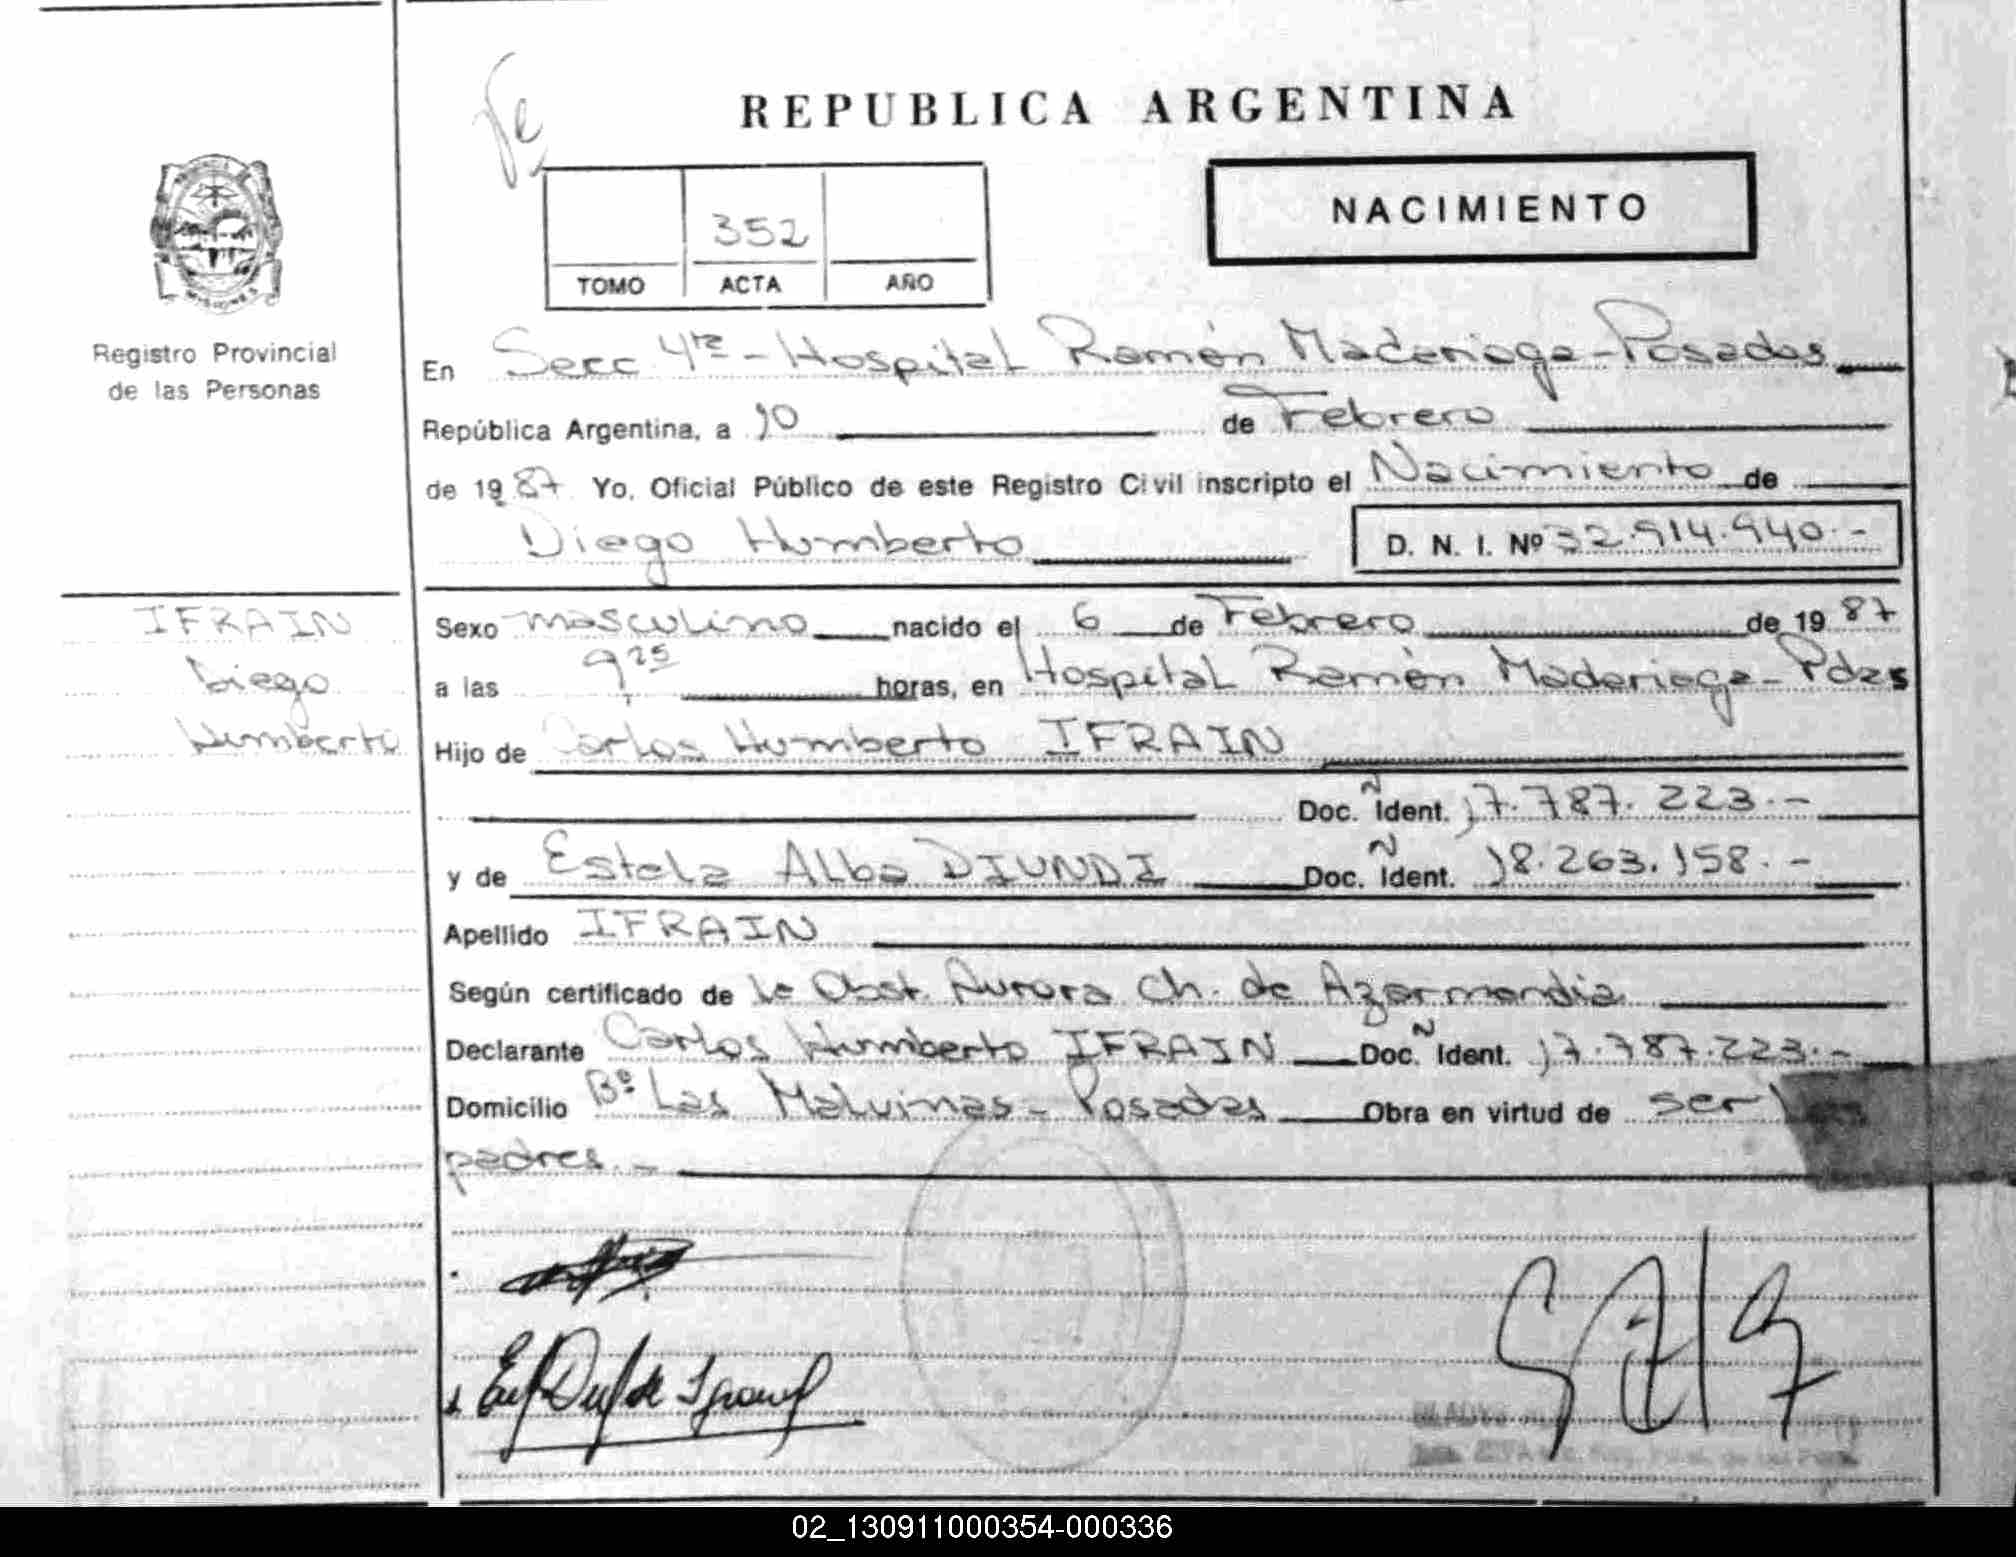 REPUBLICA ARGENTINA
NACIMIENTO
352
TOMO ACTA AÑO
MISIONES
Registro Provincial
de las Personas
En Secc 4ta - Hospital Ramón Madariaga - Posadas
República Argentina, a 10 de Febrero
de 1987 Yo, Oficial Público de este Registro Civil inscripto el Nacimiento de
Diego Humberto D. N. I. Nº 32.914.940.-
IFRAIN
Diego
Humberto
Sexo masculino nacido el 6 de Febrero de 1987
a las 9 25 horas, en Hospital Ramón Madariaga - Pdas
Hijo de Carlos Humberto IFRAIN
Doc. Ident. 17.787.223.-
y de Estela Alba DIUNDI Doc. Ident. 18.263.158.-
Apellido IFRAIN
Según certificado de la Obst. Aurora Ch. de Azarmendia
Declarante Carlos Humberto IFRAIN Doc. Ident. 17.787.223.-
Domicilio Bº Las Malvinas - Posadas Obra en virtud de ser
padres.-
02_130911000354-000336